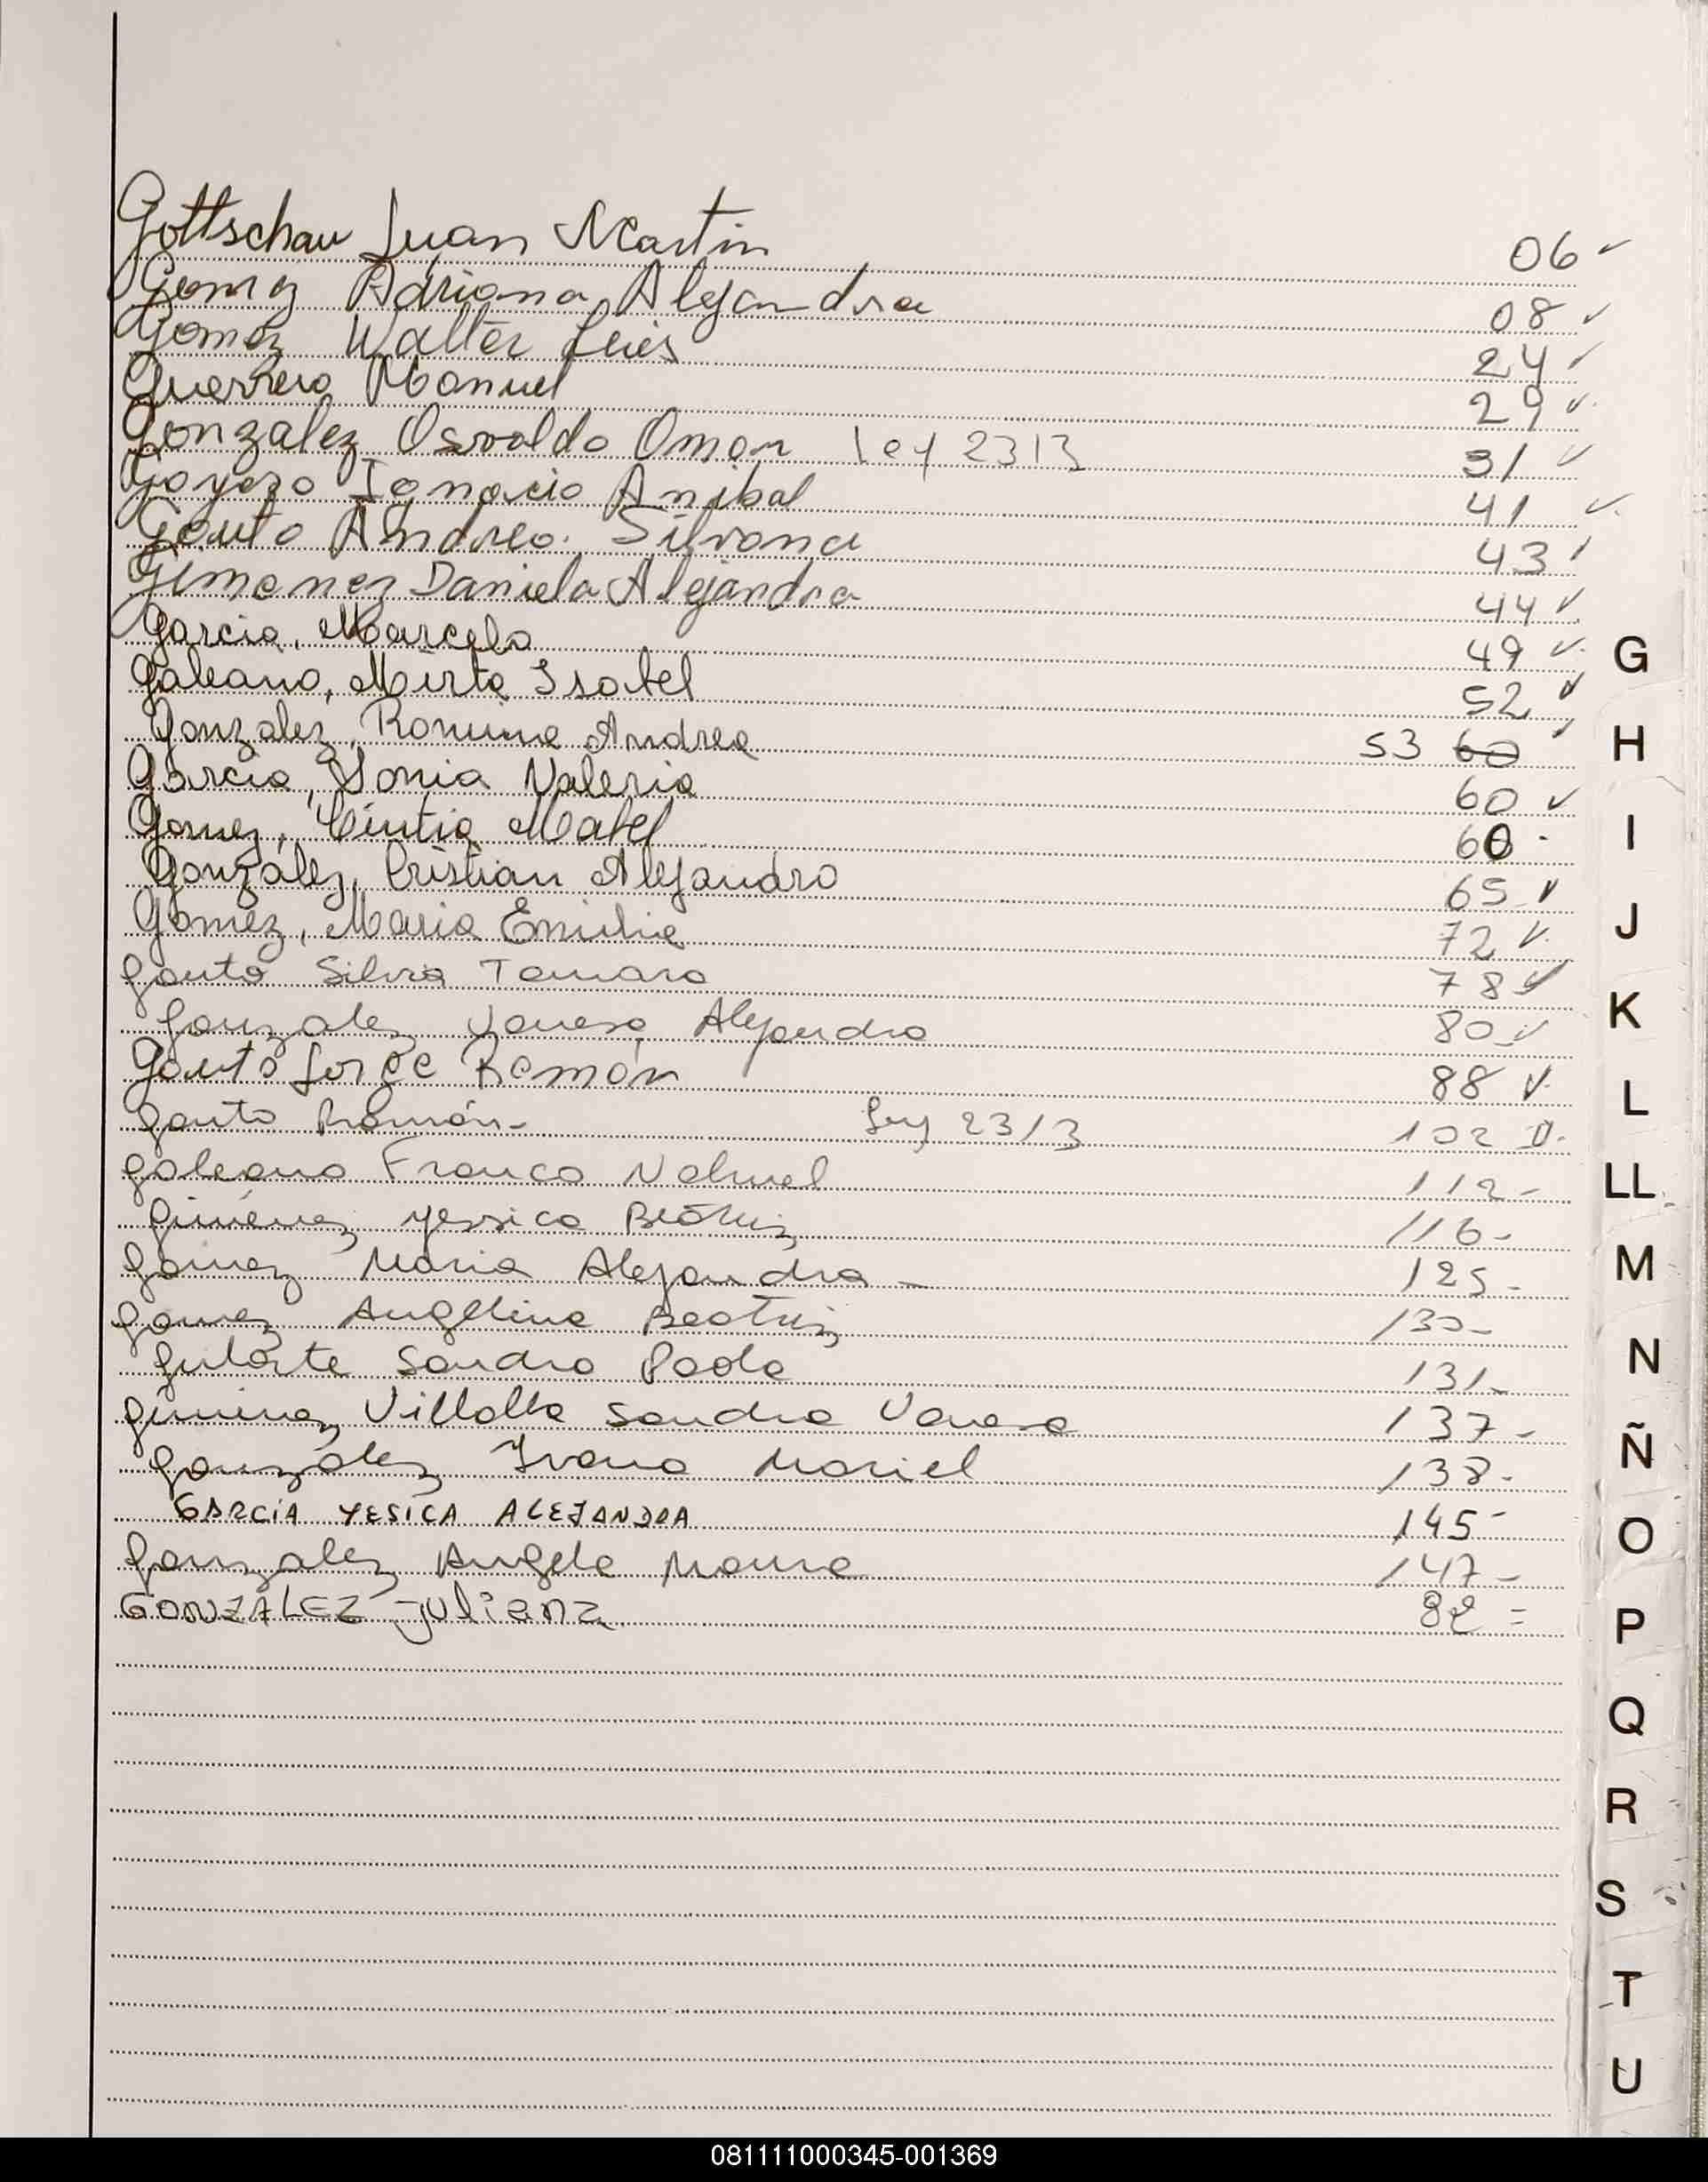 Gottschau Juan Martin 06 ✓
Gomez Adriana Alejandra 08 ✓
Gomez Walter Luis 24 ✓
Guerrero Manuel 29 ✓
Gonzalez Osvaldo Omar ley 2313 31 ✓
Goyezo Ignacio Anibal 41 ✓
Gauto Andrea Silvana 43 ✓
Gimenez Daniela Alejandra 44 ✓
Garcia, Marcela 49 ✓
Galeano, Mirta Isabel 52 ✓
Gonzalez, Romina Andrea 53 60 ✓
Garcia, Sonia Valeria 60 ✓
Gomez, Cintia Mabel 60 -
González, Cristian Alejandro 65 ✓
Gomez, Maria Emilia 72 ✓
Gauto Silvia Tamara 78 ✓
Gonzalez Vanesa Alejandra 80 ✓
Gauto Jorge Ramón 88 ✓
Gauto Ramón- Ley 23/3 102
Galeano Franco Nahuel 112-
Giménez Yessica Beátriz 116-
Gomez Maria Alejandra - 125-
Gomez Angelina Beatriz 130-
Gularte Sandra Paola 131-
Gimenez Villalba Sandra Vanesa 137-
González Ivana Mariel 138-
GARCÍA YESICA ALEJANDRA 145-
Gonzalez Angela Maria 147-
GONZALEZ Juliana 82 =
G
H
I
J
K
L
LL
M
N
Ñ
O
P
Q
R
S
T
U
081111000345-001369